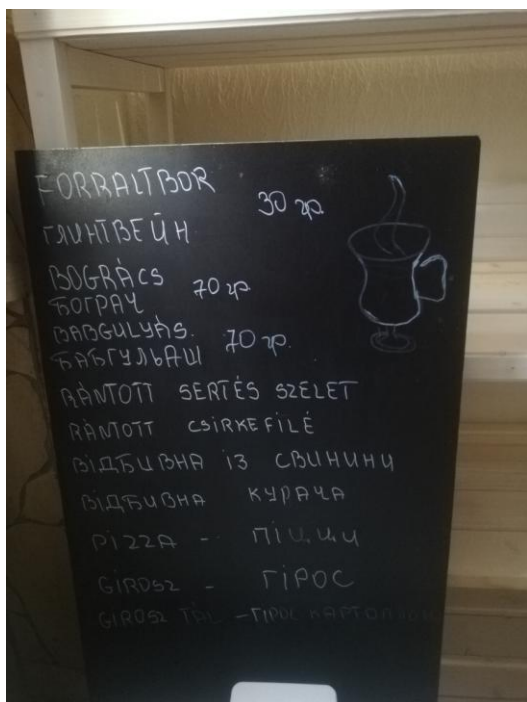 FORRALTBOR
30 гр
ГЛИНТВЕЙН
BOGRÁCS
70 гр
БОГРАЧ
BABGULYÁS.
70 гр.
БАБГУЛЬАШ
RÁNTOTT SERTÉS SZELET
RÁNTOTT CSIRKEFILÉ
ВІДБИВНА ІЗ СВИНИНИ
ВІДБИВНА КУРАЧА
PIZZA - ПІЦЦИ
GIROSZ - ГІРОС
GIROSZ TÁL - ГІРОС